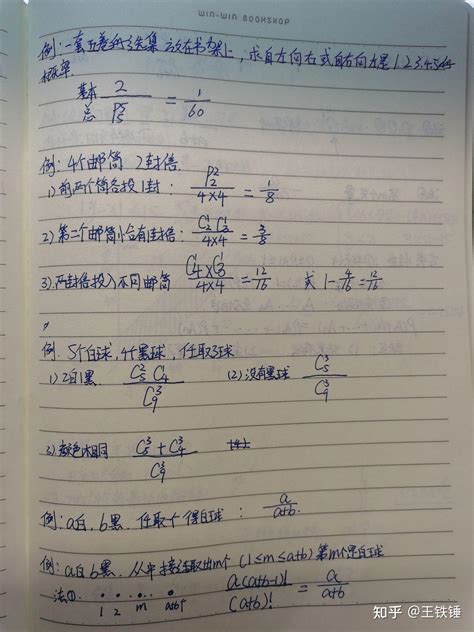 WIN-WIN BOOKSHOP
例:一套五卷的选集 放在书架上,求自左向右或自右向左是1.2.3.4.5的
概率.
基本 2 / 总 P_5^5 = 1/60
例: 4个邮筒 2封信
1)前两个筒各投1封: P_2^2 / 4×4 = 1/8
2)第二个邮筒恰有1封信: C_2^1 C_3^1 / 4×4 = 3/8
3).两封信投入不同邮筒 C_4^1×C_3^1 / 4×4 = 12/16 或 1-4/16=12/16
例. 5个白球,4个黑球,任取3球
1)2白1黑. C_5^2 C_4^1 / C_9^3 (2)没有黑球 C_5^3 / C_9^3
3)颜色相同 C_5^3+C_4^3 / C_9^3
例:a白,b黑.任取1个得白球: a / a+b.
例:a白b黑.从中接连取出m个(1≤m≤a+b)第m个是白球
法①. 1 2 m a+b个 a(a+b-1)! / (a+b)! = a / a+b
知乎 @王铁锤